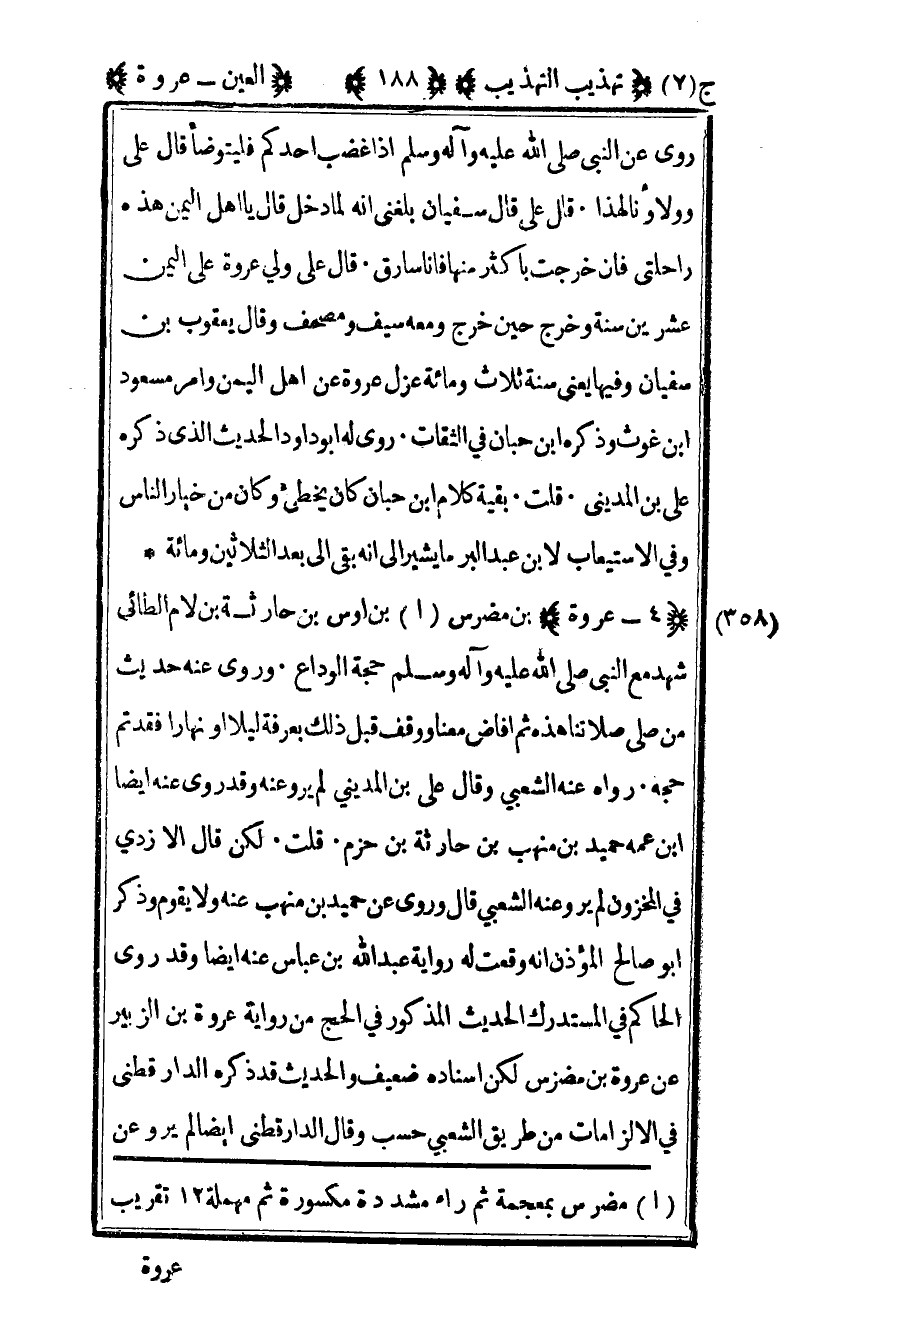 ج(٧) ﴿ تهذيب التهذيب ﴾ ﴿ ١٨٨ ﴾ ﴿ العين ــ عروة ﴾
روى عن النبى صلى الله عليه وآله وسلم اذا غضب احدكم فليتوضأ قال على
وولاؤنا لهذا ٠ قال على قال سـفيان بلغنى انه لما دخل قال يا اهل اليمن هذه
راحلتى فان خرجت باكثر منها فانا سارق ٠ قال على ولي عروة على اليمن
عشرين سنة وخرج حين خرج ومعه سيف ومصحف وقال يعقوب بن
سفيان وفيها يعنى سنة ثلاث ومائة عزل عروة عن اهل اليمن وامر مسعود
ابن غوث وذكره ابن حبان في الثقات ٠ روى له ابوداود الحديث الذى ذكره
على بن المدينى ٠ قلت ٠ بقية كلام ابن حبان كان يخطئ وكان من خيار الناس
وفي الاستيعاب لابن عبدالبر مايشير الى انه بقى الى بعد الثلاثين ومائة *
(٣٥٨) ﴿ ٤ ــ عروة ﴾ بن مضرس (١) بن اوس بن حارثـة بن لام الطائي
شهد مع النبى صلى الله عليه وآله وسـلم حجة الوداع ٠ وروى عنه حديث
من صلى صلاتنا هذه ثم افاض معنا ووقف قبل ذلك بعرفة ليلا او نهارا فقد تم
حجه ٠ رواه عنه الشعبي وقال على بن المديني لم يرو عنه وقد روى عنه ايضا
ابن عمه حميد بن منهب بن حارثة بن حزم ٠ قلت ٠ لكن قال الازدي
في المخزون لم يرو عنه الشعبي قال وروى عن حميد بن منهب عنه ولا يقوم وذكر
ابو صالح المؤذن انه وقعت له رواية عبدالله بن عباس عنه ايضا وقد روى
الحاكم في المستدرك الحديث المذكور في الحج من رواية عروة بن الزبير
عن عروة بن مضرس لكن اسناده ضعيف والحديث قد ذكره الدار قطنى
في الالزامات من طريق الشعبي حسب وقال الدار قطنى ايضا لم يرو عن
(١) مضرس بمعجمة ثم راء مشددة مكسورة ثم مهملة ١٢ تقريب
عروة